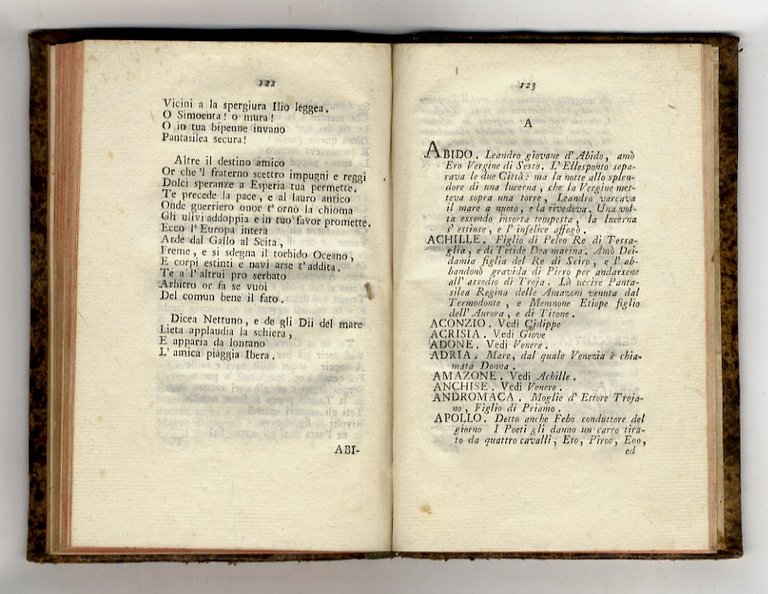 122
Vicini a la spergiura Ilio leggea.
O Simoenta! o mura!
O in tua bipenne invano
Pantasilea secura!
Altre il destino amico
Or che 'l fraterno scettro impugni e reggi
Dolci speranze a Esperia tua permette.
Te precede la pace, e al lauro antico
Onde guerriero onor t' ornò la chioma
Gli ulivi addoppia e in tuo favor promette.
Ecco l' Europa intera
Arde dal Gallo al Scita,
Freme, e si sdegna il torbido Oceano,
E corpi estinti e navi arse t' addita.
Te a l' altrui pro serbato
Arbitro or fa se vuoi
Del comun bene il fato.
Dicea Nettuno, e de gli Dii del mare
Lieta applaudia la schiera,
E apparia da lontano
L' amica piaggia Ibera.
ABI-
123
A
ABIDO. Leandro giovane d' Abido, amò
Ero Vergine di Sesto. L' Ellesponto sepa-
rava le due Città: ma la notte allo splen-
dore di una lucerna, che la Vergine met-
teva sopra una torre, Leandro varcava
il mare a nuoto, e la rivedeva. Una vol-
ta essendo insorta tempesta, la lucerna
s' estinse, e l' infelice affogò.
ACHILLE. Figlio di Peleo Re di Tessa-
glia, e di Teitide Dea marina. Amò Dei-
damia figlia del Re di Sciro, e l' ab-
bandonò gravida di Pirro per andarsene
all' assedio di Troja. Là uccise Panta-
silea Regina delle Amazoni venuta dal
Termodonte, e Memnone Etiope figlio
dell' Aurora, e di Titone.
ACONZIO. Vedi Cidippe
ACRISIA. Vedi Giove
ADONE. Vedi Venere.
ADRIA. Mare, dal quale Venezia è chia-
mata Donna.
AMAZONE. Vedi Achille.
ANCHISE. Vedi Venere.
ANDROMACA. Moglie d' Ettore Troja-
no, Figlio di Priamo.
APOLLO. Detto anche Febo conduttore del
giorno I Poeti gli danno un carro tira-
to da quattro cavalli, Eto, Piroo, Eoo,
ed